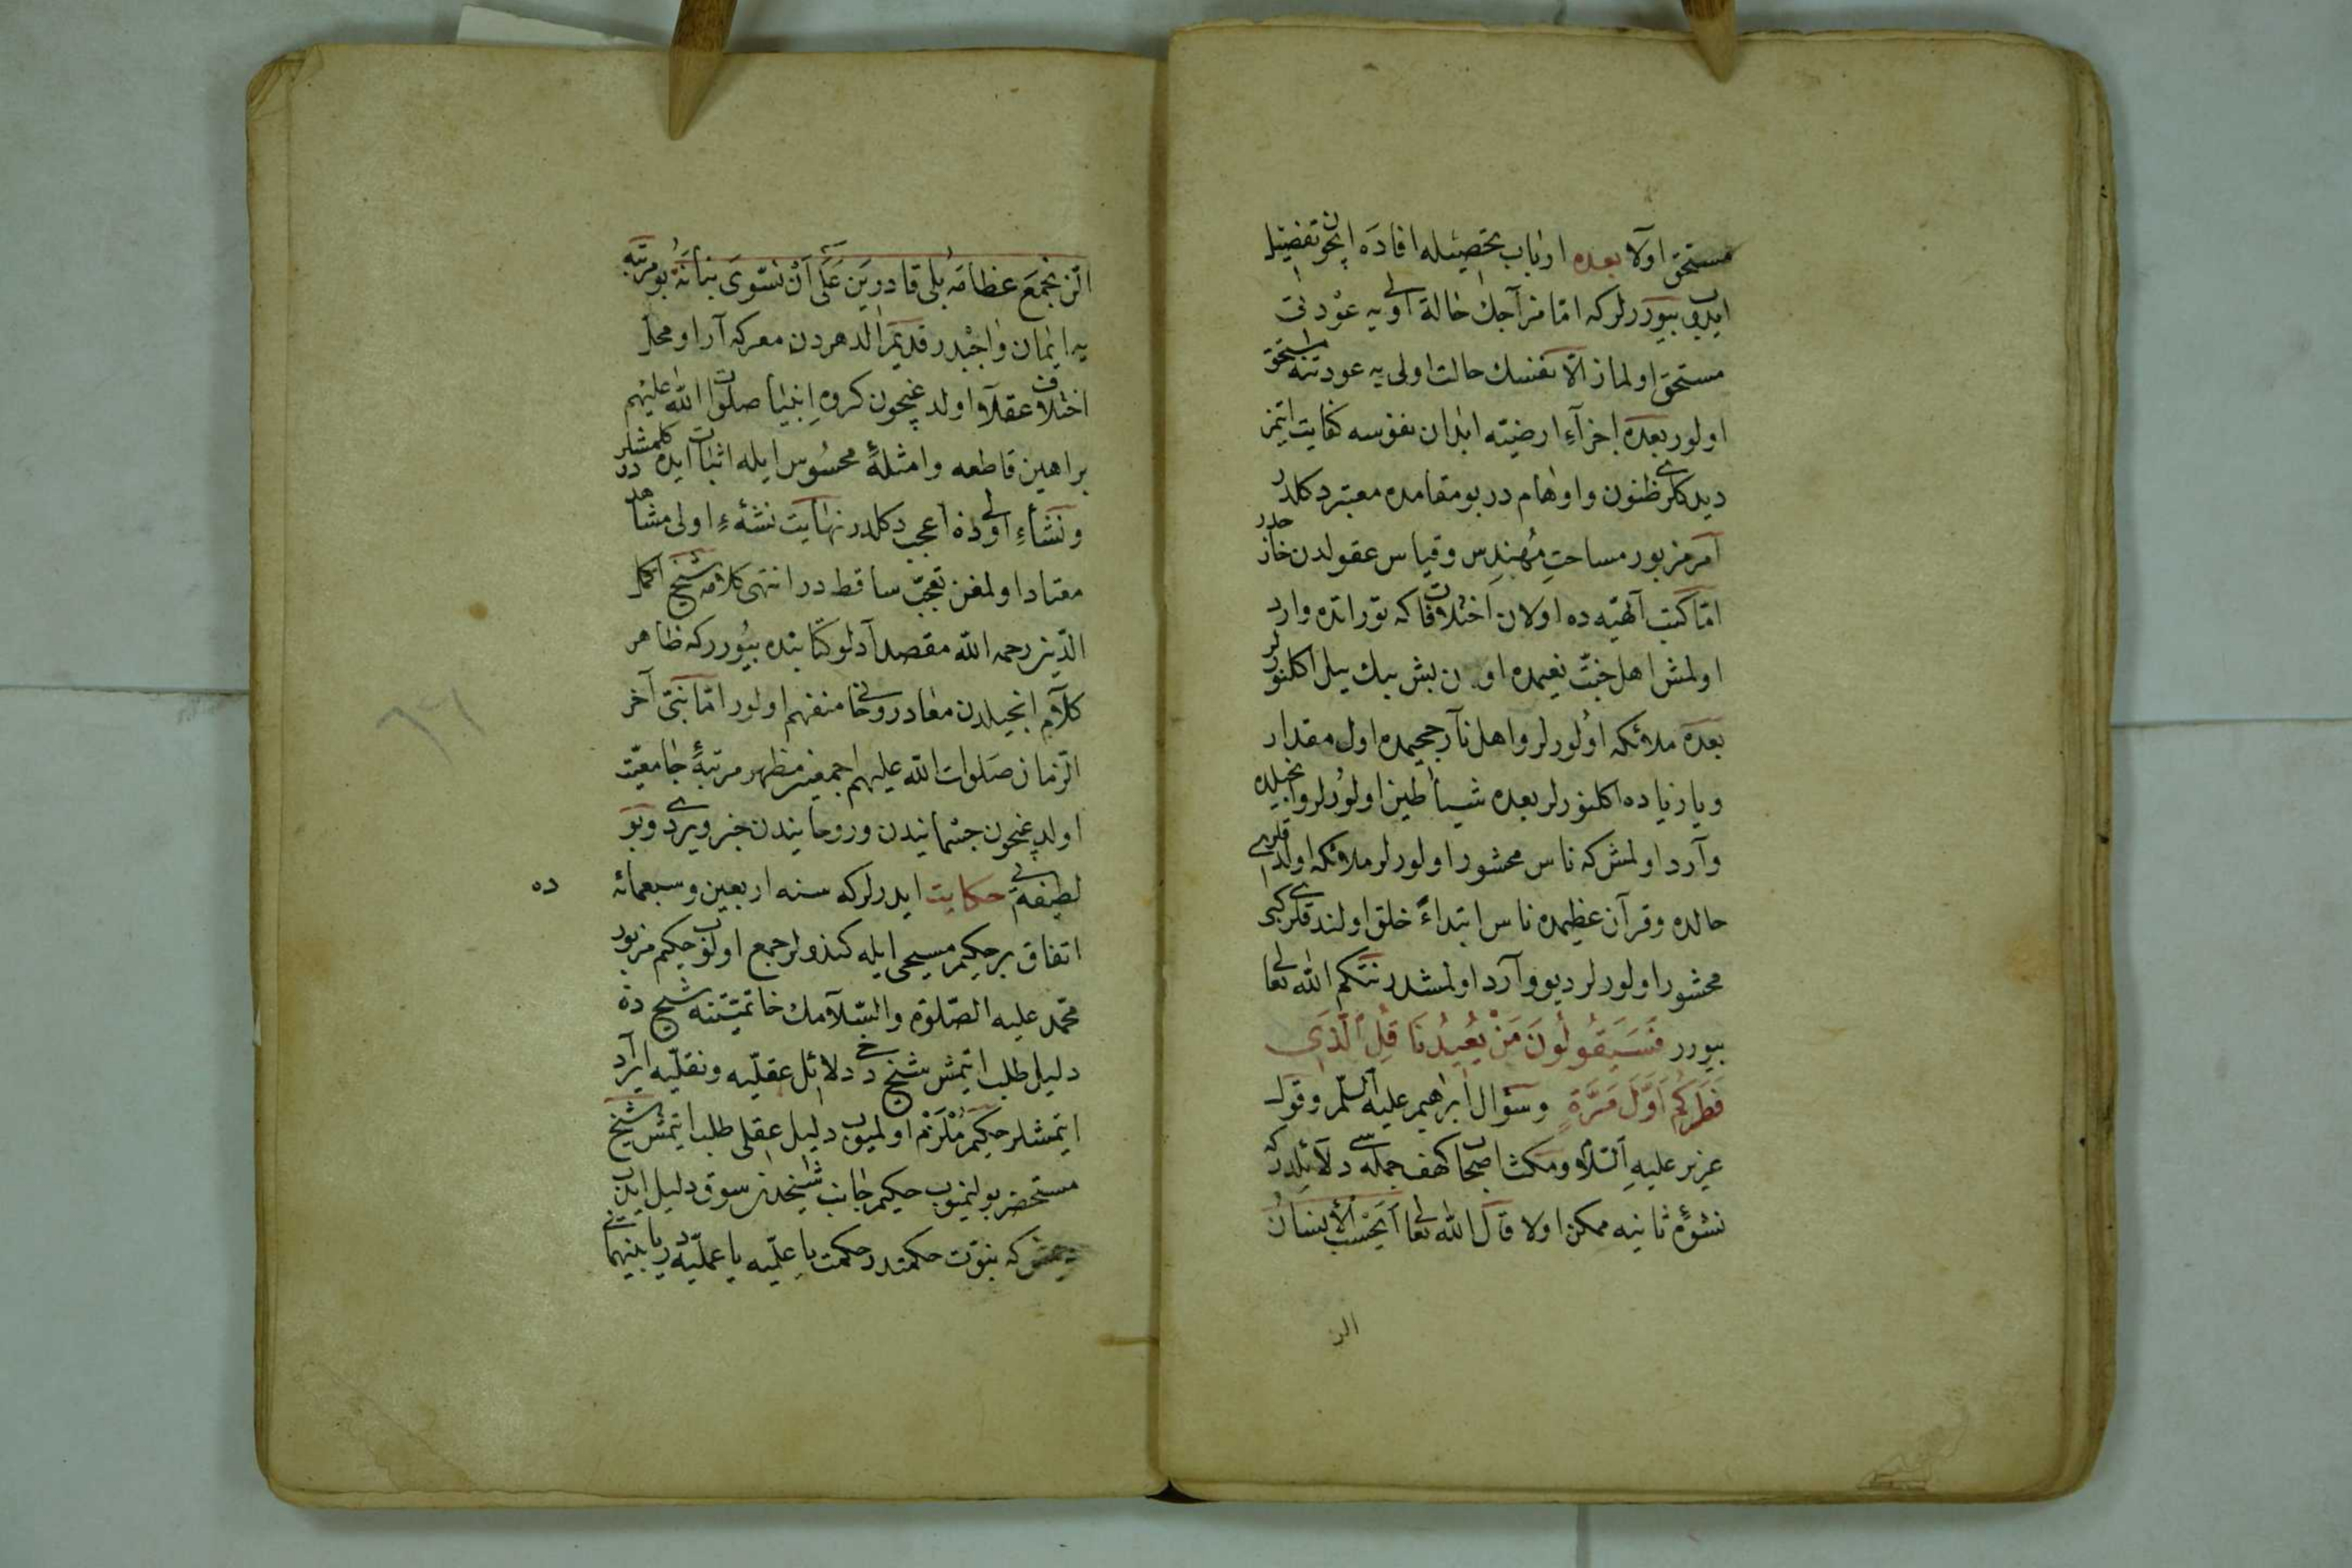 مستحق اولا بعده ارباب تحصیله افاده ایچون تفضیل
ایدوب بیوررلرکه امّا مزاجك حالة اولی یه عودتی
مستحق اولماز الّا نفسك حالت اولی یه عودتنه مستحق
اولور بعده اجزآء ارضیته ابدان نفوسه کفایت ایتمز
دیدکلری ظنون و اوهام در بو مقامده معتبر دکلدر
امر مزبور مساحتِ مُهندِس و قیاس عقولدن خارجدر
امّا کتب آلهیّه ده اولان اختلافات که توراتده وارد
اولمش اهل جنّت نعیمده اون بش بیك ییل اکلنورلر
بعده ملائکه اولورلر و اهل نار جحیمده اول مقدار
ویا زیاده اکلنورلر بعده شیاطین اولورلر و انجیلده
وآرد اولمش که ناس محشور اولورلر ملائکه اولدقلری
حالده و قرآن عظیمده ناس ابتداءً خلق اولندقلری کبی
محشور اولورلر دیو وآرد اولمشدر نتکم الله تعالی
بیورر فَسَيَقُولُونَ مَنْ يُعِيدُنَا قُلِ الَّذِي
فَطَرَكُمْ اَوَّلَ مَرَّةٍ وسؤال ابرهیم علیه السّلم و قول
عزیر علیهِ السّلام ومکث اصحاب کهف جمله سی دلائلدرکه
نشوهٔ ثانیه ممکن اولا قال الله تعالی اَيَحْسَبُ الْاِنسانُ
الن
الّن نجمَعَ عظامَهُ بلی قادرینَ عَلَی اَنْ نسّوىَ بنانَهُ بو مرتبه
یه ایمان واجبدر قدیم الدهردن معرکه آرا و محل
اختلاف عقلآء اولدغیچون کروه اِنبیا صلوات الله علیهم
براهین قاطعه و امثلهٔ محسُوس ایله اثبات ایده کلمشلردر
ونشاءِ اولی ذه اعجب دکلدر نهایت نشهٔءِ اولی مشاهد
معتاد اولمغن تعجّب ساقط در انتهی کلامه شیخ اکمل
الدّین رحمه الله مقصد آدلو کتابنده بیُوررکه ظاهر
کلام انجیلدن معاد روحانی منفهم اولور امّا نبیّ آخر
الزمان صَلوات الله علیهم اجمعین مظهر مرتبهٔ جامعیّت
اولدیغیچون جسمانیدن و روحانیدن خبر ویردی و بو
لطیفه یی حکایت ایدرلرکه سنه اربعین وسبعمائه ده
اتفاق بر حکیم مسیحی ایله کندولر جمع اولوب حکیم مزبور
محمّد علیه الصّلوة والسّلامك خاتمیّتنه شیخ دن
دلیل طلب ایتمش شیخ دخی دلائل عقلیّه ونقلیّه ایراد
ایتمشلر حکیم مُلزَمْ اولمیوب دلیل عقلی طلب ایتمش شیخ
مستحضر بولنمیوب حکیم جانب شیخدن سوق دلیل ایدوب
دیمش که نبوّت حکمتدر حکمت یا علمیّه یا عملیّه در یا بینهما